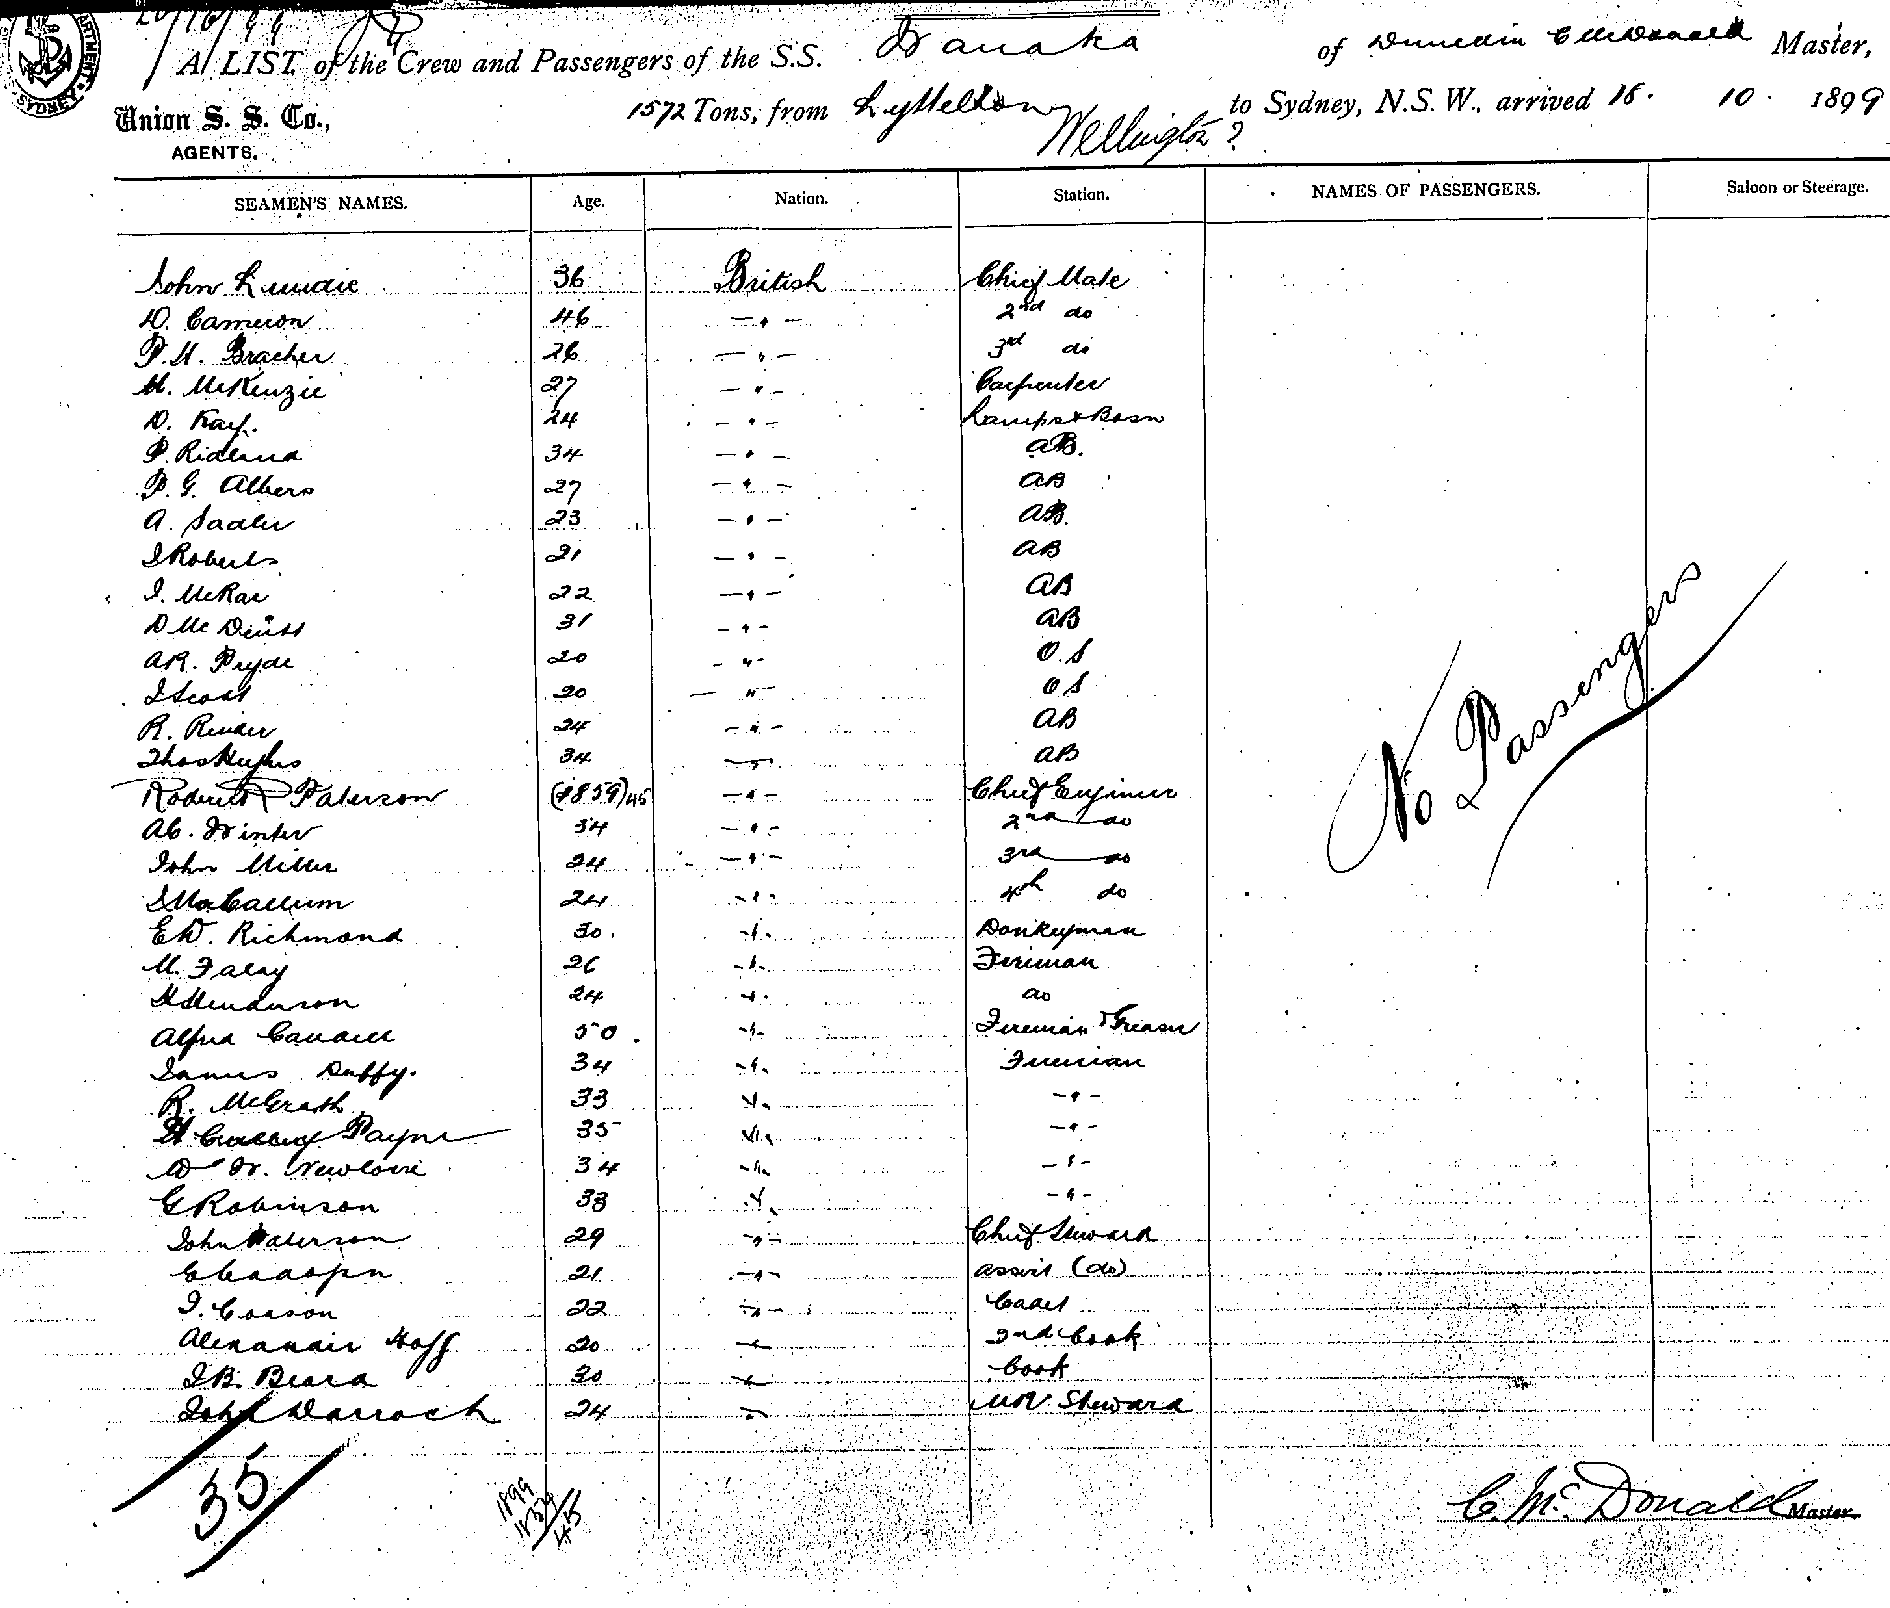 SYDNEY
A LIST of the Crew and Passengers of the S.S. Wanaka of Dunedin C McDonald Master,
Union S. S. Co., 1572 Tons, from Lyttelton to Sydney, N.S.W., arrived 16. 10. 1899
Wellington ?
AGENTS.
SEAMEN'S NAMES. Age. Nation. Station. NAMES OF PASSENGERS. Saloon or Steerage.
John Lundie 36 British Chief Mate
D. Cameron 46 - " - 2nd do
P. H. Bracher 26 - " - 3rd do
M. McKenzie 27 - " - Carpenter
D. Kay. 24 - " - Lamps & Bosn
P. Ridland 34 - " - AB.
P. G. Albers 27 - " - AB
A. Sadler 23 - " - AB.
J Roberts 21 - " - AB
J. McRae 22 - " - AB
D Mc 31 - " - AB
AR. Pryde 20 - " - O.S
J Scott 20 - " - O S
R. Render 24 - " - AB
Thos Hughes 34 - " - AB
Roderick Paterson (1859) 45 - " - Chief Engineer
AC. Winter 34 - " - 2nd do
John Miller 24 - " - 3rd do
J McCallum 24 - " - 4th do
EW. Richmond 30. - " - Donkeyman
M. Faley 26 - " - Fireman
H Henderson 24 " do
Alfred 50 - " - Fireman & Greaser
James Duffy. 34 - " - Fireman
R. McGrath 33 " - " -
H Payne 35 " - " -
W W. Newlove 34 - " - - " -
G Robinson 33 " - " -
John Paterson 29 - " - Chief Steward
21 - " - assist (do)
J. 22 - " - Cadet
Alexander Hoff 20 - " - 2nd Cook
J B. Beard 30 - " - Cook
John Darroch 24 " Steward
No Passengers
35
1899
1859
45
C. Mc Donald Master